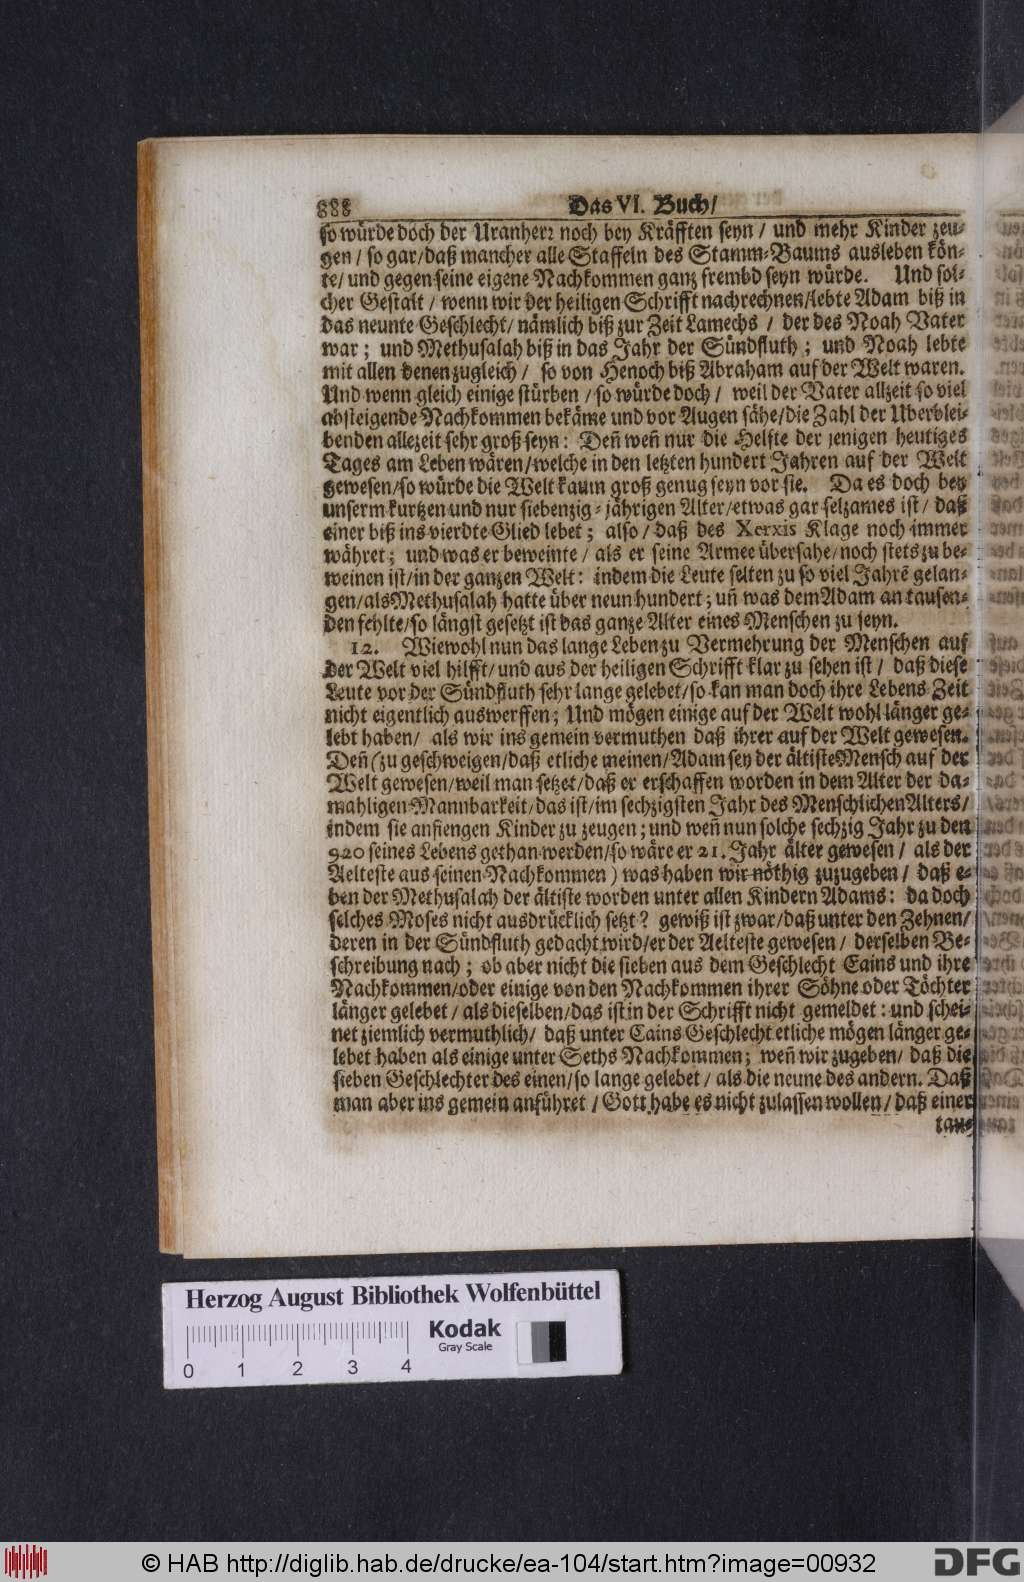 888 Das VI. Buch/
so würde doch der Uranherr noch bey Kräfften seyn / und mehr Kinder zeu-
gen / so gar / daß mancher alle Staffeln des Stamm-Baums ausleben kön-
te / und gegen seine eigene Nachkommen ganz frembd seyn würde. Und sol-
cher Gestalt / wenn wir der heiligen Schrifft nachrechnen / lebte Adam biß in
das neunte Geschlecht / nämlich biß zur Zeit Lamechs / der des Noah Vater
war ; und Methusalah biß in das Jahr der Sündfluth ; und Noah lebte
mit allen denen zugleich / so von Henoch biß Abraham auf der Welt waren.
Und wenn gleich einige stürben / so würde doch / weil der Vater allzeit so viel
absteigende Nachkommen bekäme und vor Augen sähe / die Zahl der Überblei-
benden allezeit sehr groß seyn : Deñ weñ nur die Helfte der jenigen heutiges
Tages am Leben wären / welche in den letzten hundert Jahren auf der Welt
gewesen / so würde die Welt kaum groß genug seyn vor sie. Da es doch bey
unserm kurtzen und nur siebenzig-jährigen Alter / etwas gar selzames ist / daß
einer biß ins vierdte Glied lebet ; also / daß des Xerxis Klage noch immer
währet ; und was er beweinte / als er seine Armee übersahe / noch stets zu be-
weinen ist / in der ganzen Welt : indem die Leute selten zu so viel Jahrē gelan-
gen / als Methusalah hatte über neun hundert ; uñ was dem Adam an tausen-
den fehlte / so längst gesetzt ist das ganze Alter eines Menschen zu seyn.
12. Wiewohl nun das lange Leben zu Vermehrung der Menschen auf
der Welt viel hilfft / und aus der heiligen Schrifft klar zu sehen ist / daß diese
Leute vor der Sündfluth sehr lange gelebet / so kan man doch ihre Lebens Zeit
nicht eigentlich auswerffen ; Und mögen einige auf der Welt wohl länger ge-
lebt haben / als wir ins gemein vermuthen daß ihrer auf der Welt gewesen.
Deñ (zu geschweigen / daß etliche meinen / Adam sey der ältiste Mensch auf der
Welt gewesen / weil man setzet / daß er erschaffen worden in dem Alter der da-
mahligen Mannbarkeit / das ist / im sechzigsten Jahr des Menschlichen Alters /
indem sie anfiengen Kinder zu zeugen ; und weñ nun solche sechzig Jahr zu den
920 seines Lebens gethan werden / so wäre er 21. Jahr älter gewesen / als der
Aelteste aus seinen Nachkommen ) was haben wir nöthig zuzugeben / daß e-
ben der Methusalah der ältiste worden unter allen Kindern Adams : da doch
selches Moses nicht ausdrücklich setzt ? gewiß ist zwar / daß unter den Zehnen /
deren in der Sündfluth gedacht wird / er der Aelteste gewesen / derselben Be-
schreibung nach ; ob aber nicht die sieben aus dem Geschlecht Cains und ihre
Nachkommen / oder einige von den Nachkommen ihrer Söhne oder Töchter
länger gelebet / als dieselben / das ist in der Schrifft nicht gemeldet : und schei-
net ziemlich vermuthlich / daß unter Cains Geschlecht etliche mögen länger ge-
lebet haben als einige unter Seths Nachkommen ; weñ wir zugeben / daß die
sieben Geschlechter des einen / so lange gelebet / als die neune des andern. Daß
man aber ins gemein anführet / Gott habe es nicht zulassen wollen / daß einer
tau-
Herzog August Bibliothek Wolfenbüttel
Kodak
Gray Scale
0 1 2 3 4
© HAB http://diglib.hab.de/drucke/ea-104/start.htm?image=00932
DFG